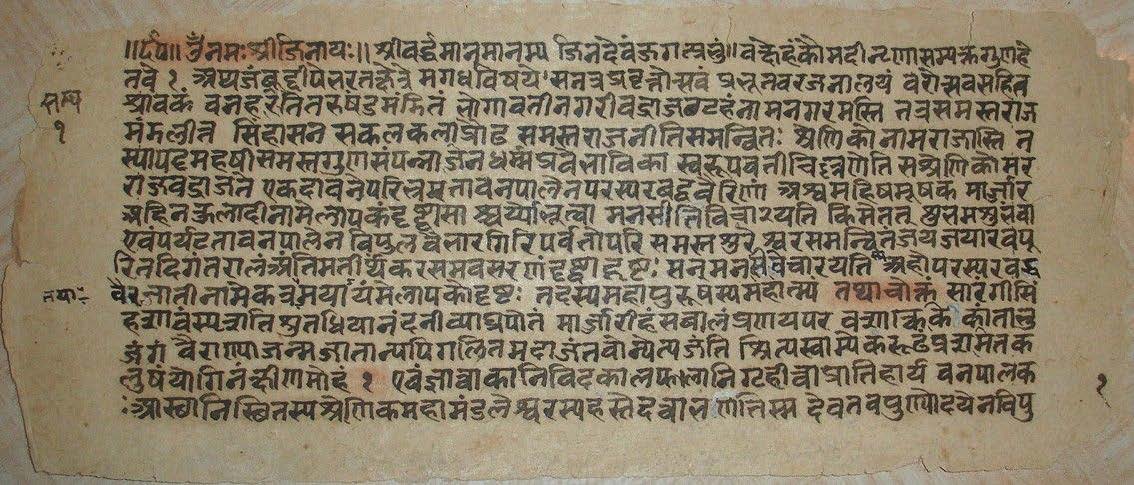 ॥ र्द०॥ ॐ नमः श्रीजिनायः॥ श्रीवर्द्धमानमानम्य जिनदेवं जगत्प्रभुं॥ वक्षेहं कौमदीनृणां सम्यक्तगुणहे
तवे १ अथ जंबूद्वीपे भरतक्षेत्रे मगधविषये सततप्रवृत्तोत्सवं प्रभूतवरजनालयं वरोत्सवसहित
श्रावकं वनहर भोगावतीनगरीवद्राजगृहं नामनगरमस्ति तत्र समस्तराज
मंडली सिंहासन सकलकलाप्रौढ समस्तराजनीतिसमन्वितः श्रेणिको नामराजास्ति त
स्यापट्टमहषी समस्तगुणसंपन्ना जैनधर्मप्रवभाविका स्वरूपवती चिल्लणेति सश्रेणिको
राजवद्राजते एकदा वने परिभ्रमता वनपालेन परस्परवद्धवैरिणा अश्वमहिषमूषक मार्जार
अहिनकुलादीनामेलापकं दृष्ट्वा साश्चर्यो भूत्वा मनसीति विचारयति किमेतत् शुभमशुभंवा
एवं पर्यटता वनपालेन विपुलवैभारगिरिपर्वतोपरि समस्तसुरेश्वरसमन्वितं जयजयारवपू
रितदिगंतरालं अंतिमतीर्थंकरसमवसरणं दृष्ट्वा हृष्टः मनमन विचारयति अहो परस्परव
वैरजातीनामेकत्रं मेलापको दृष्टः तदस्य महापुरुषस्य महात्म्यं तथाचोक्तं सारंगी सिं
हशावं स्पृशति सुतधिया नंदनी व्याघ्रपोतं मार्जारी हंसबालं प्रणयपर केकिकांताभु
जंगं वैराण्याजन्मजातान्यपि गलितमदा जंतवोन्ये त्यजंति श्रित्वा स्वाम्येकरूढं प्रशमितक
लुषं योगिनं क्षीणमोहं १ एवं ज्ञात्वा कानिचिदकालफलानि गृहीत्वा प्रातिहार्य वनपालक
आस्थानस्थितस्य श्रेणिकमहामंडलेश्वरस्य हस्ते दत्वा भणतिस्म देव तव पुण्योदयेन विपु
१
१